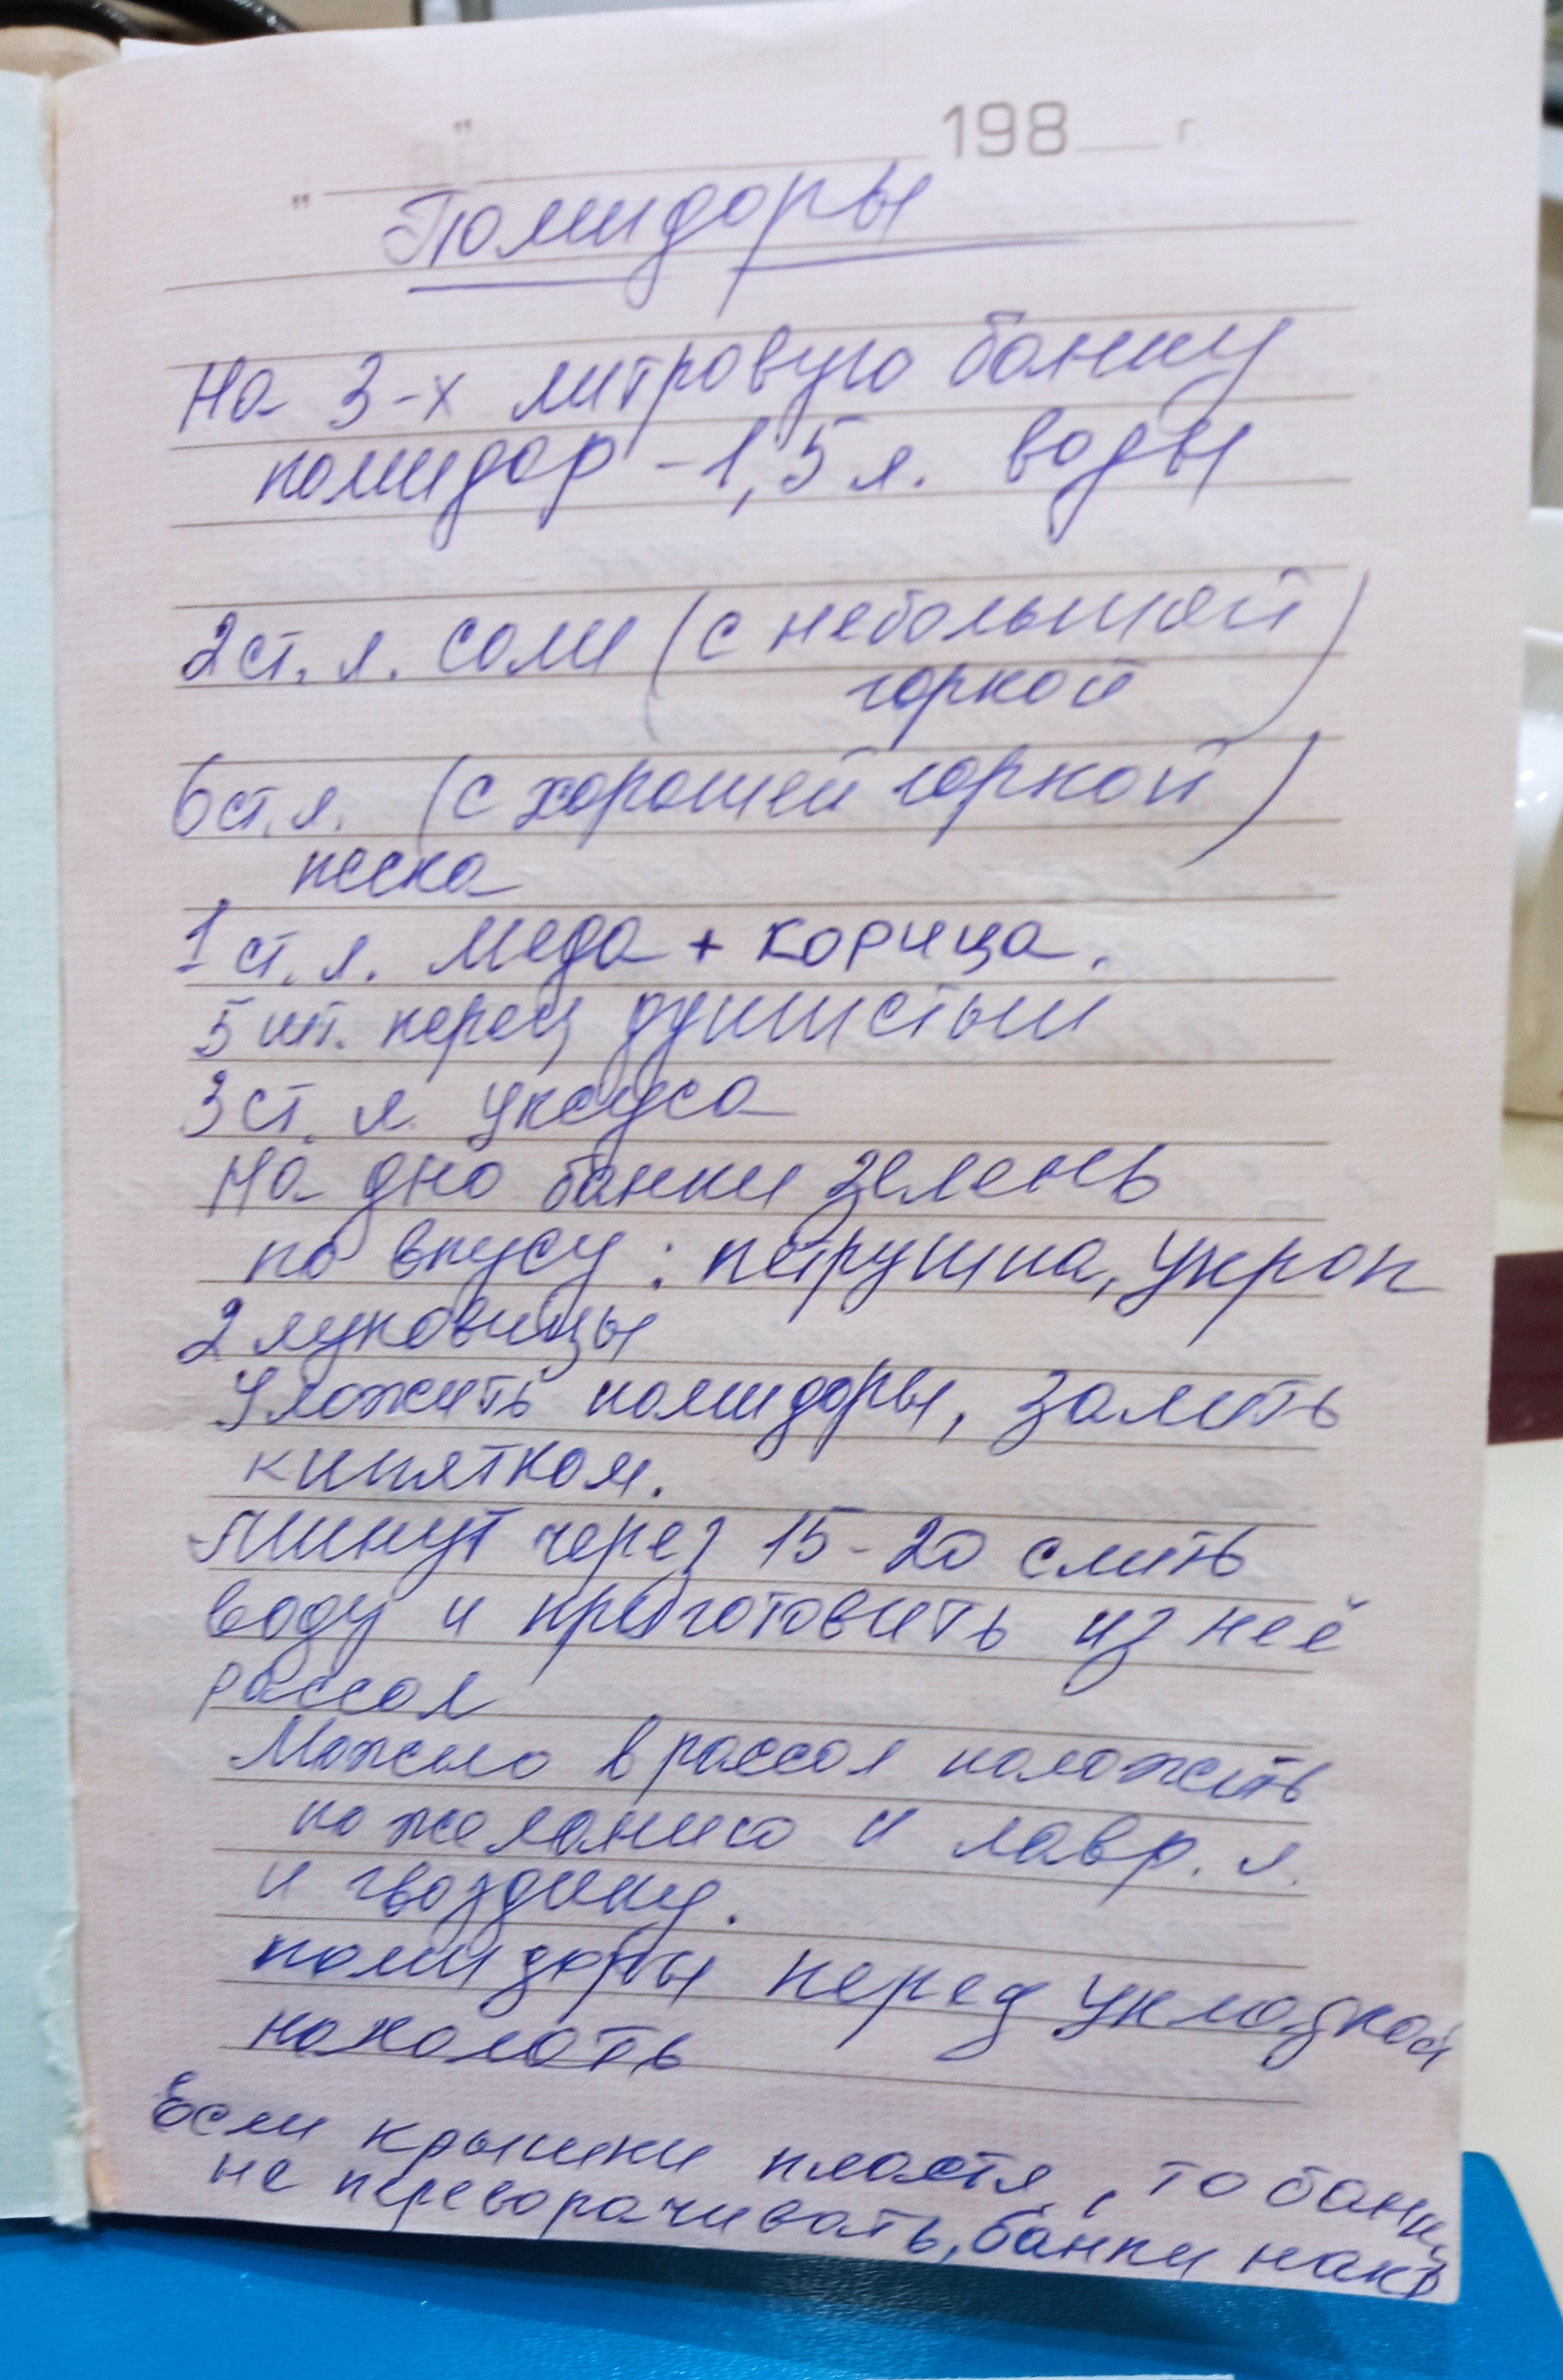 198 г
" "
Помидоры
На 3-х литровую банку
помидор - 1,5 л. воды
2 ст. л. соли (с небольшой
горкой)
6 ст. л. (с хорошей горкой)
песка
1 ст. л. меда + корица.
5 шт. перец душистый
3 ст. л. уксуса
На дно банки зелень
по вкусу: петрушка, укроп
2 луковицы
Уложить помидоры, залить
кипятком.
Минут через 15-20 слить
воду и приготовить из неё
рассол
Можно в рассол положить
по желанию и лавр. л.
и гвоздику.
помидоры перед укладкой
наколоть
Если крышки пластм., то банки
не переворачивать, банки